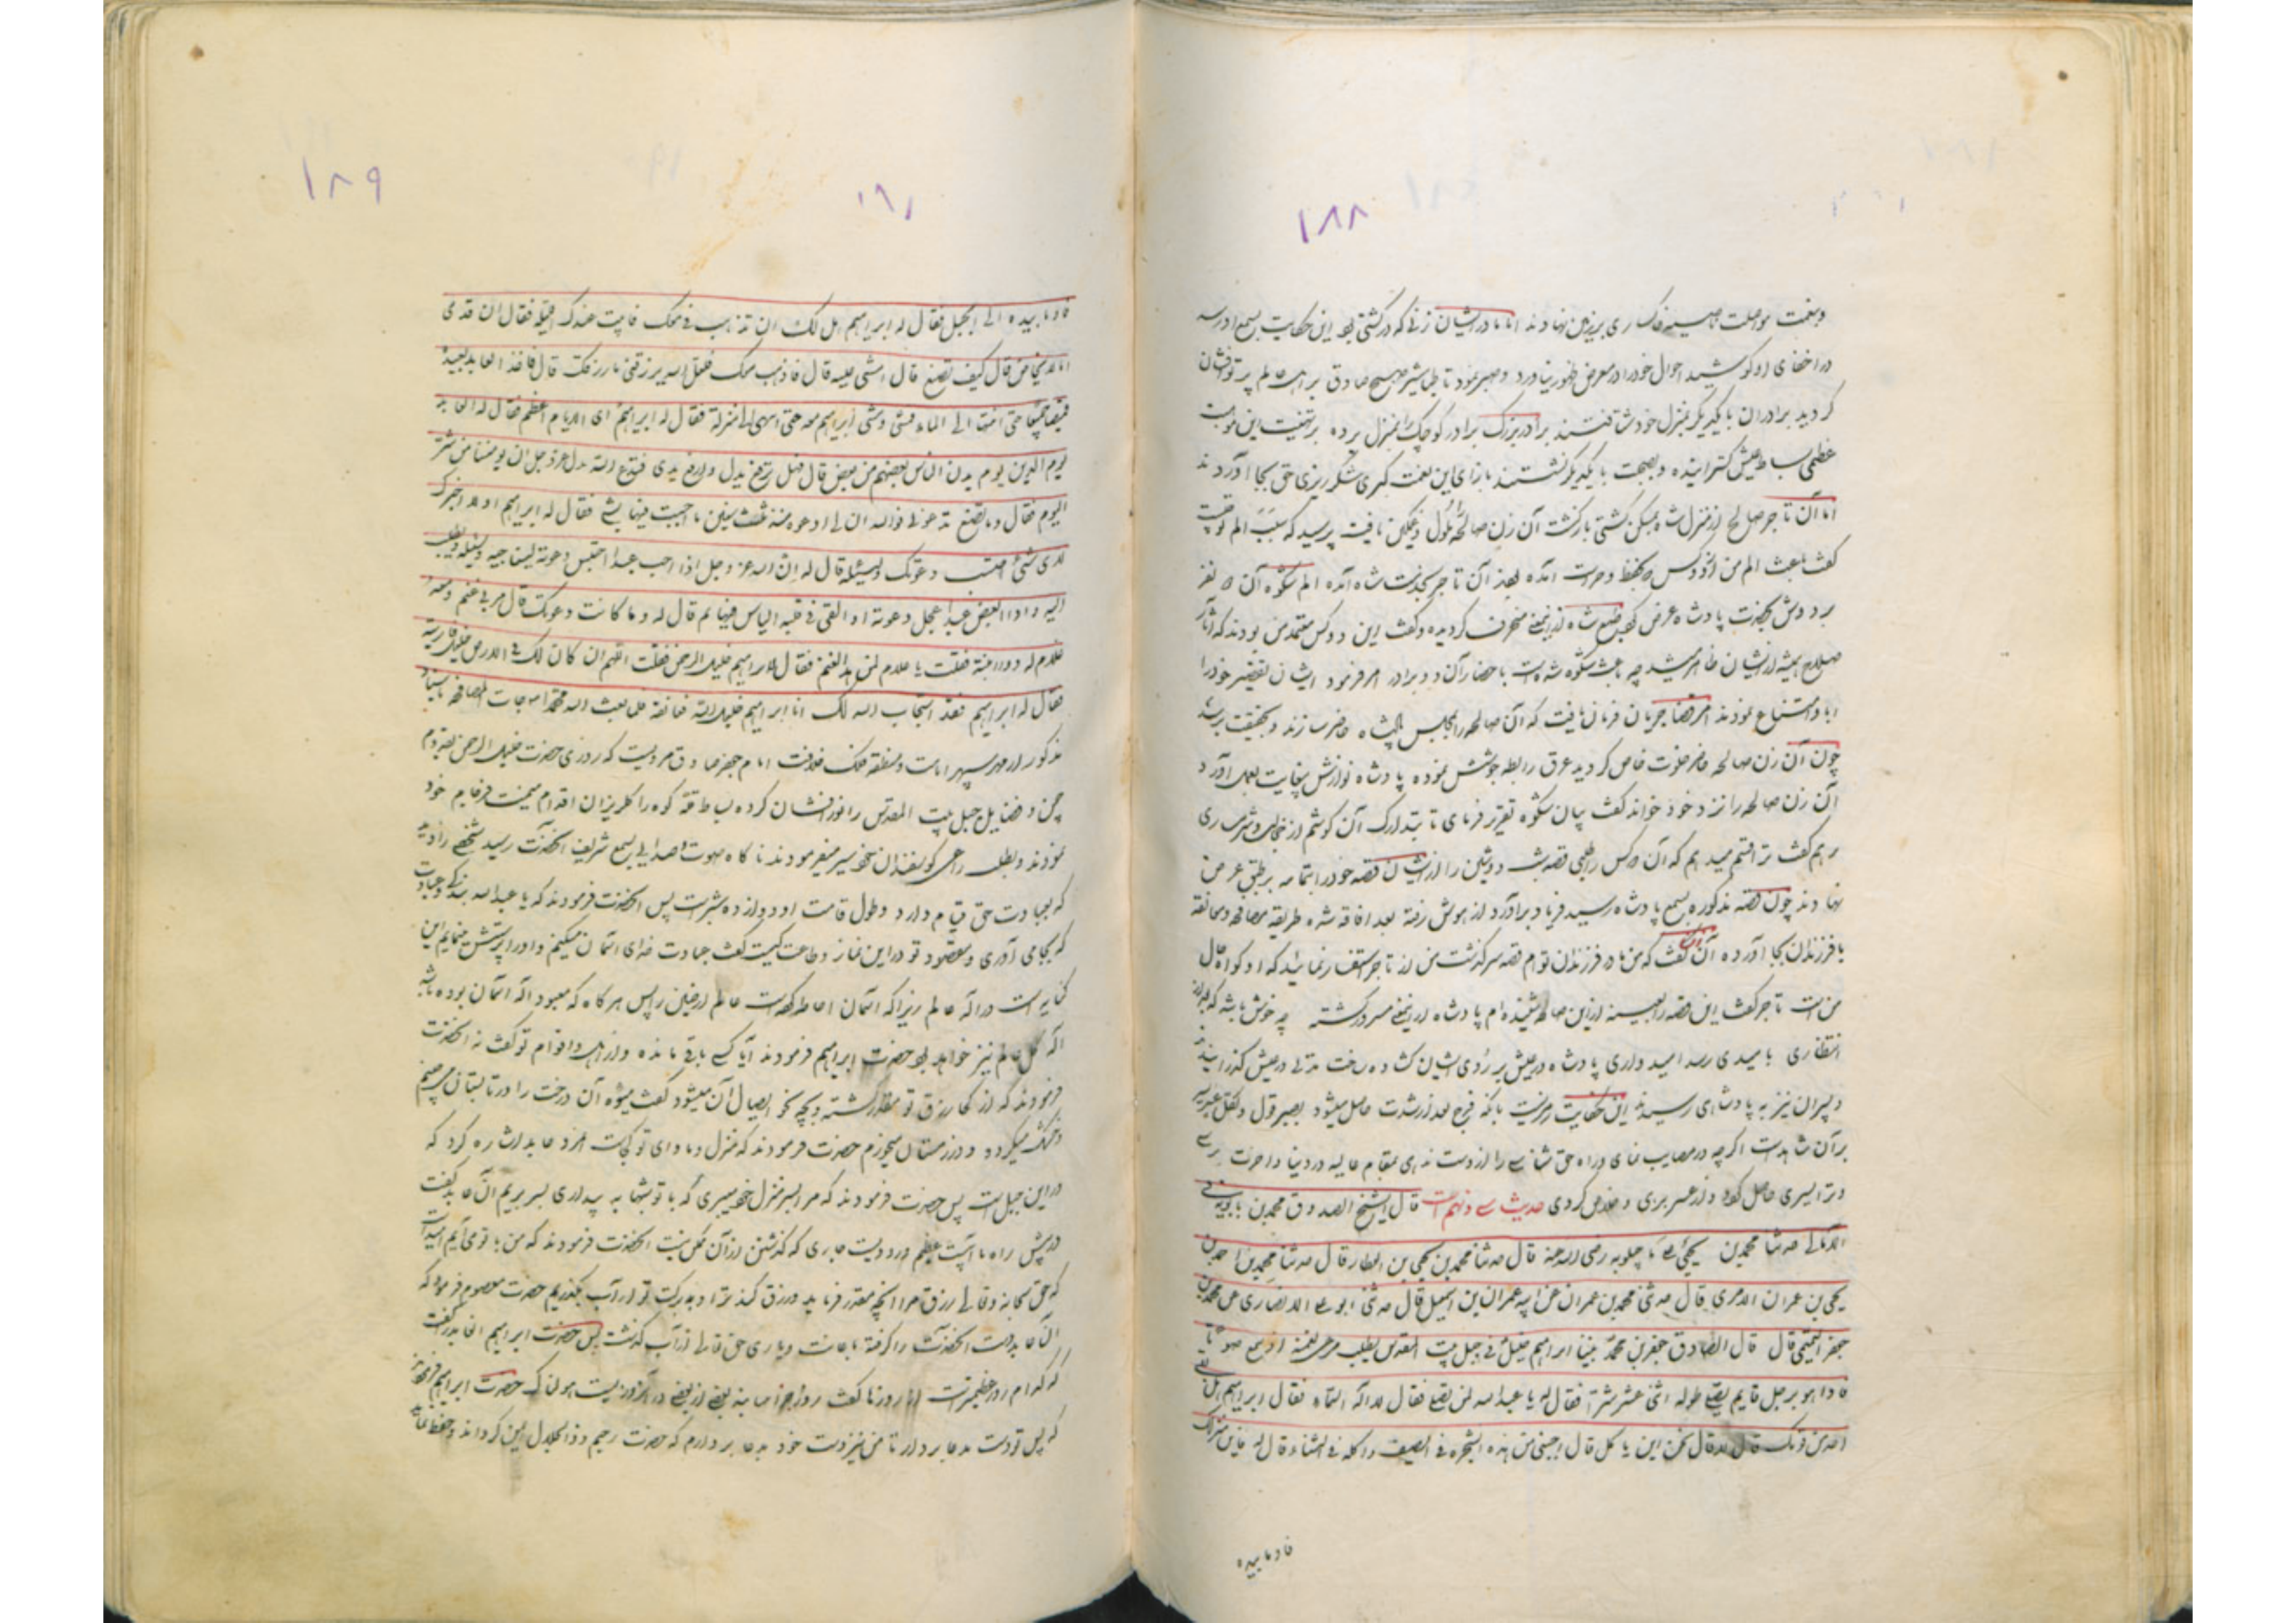 ۱۸۸
و بنعمت مواصلت ناصیه خاکساری بر زمین نهادند اما مادر ایشان زنی که در کشتی بود این حکایت بسمع او رسیده
در اخفای او کوشید احوال خود را در معرض ظهور نیاورد و صبر نمود تا طباشیر صبح صادق بر اهل عالم پرتو افشان
گردید برادران با یکدیگر بمنزل خود شتافتند برادر بزرگ برادر کوچک را بمنزل برده بر تهنیت این موهبت
عظمی بساط عیش گسترانیده و بصحبت با یکدیگر نشستند بازای این نعمت کبری شکر ریزی حق بجا آوردند
اما آن تاجر صالح از منزل شاه بمسکن کشتی بازگشت آن زن صالحه را ملول و غمگین یافت پرسید که سبب الم تو چیست
گفت باعث الم من از دو کس که بحفظ و حراست آمده بودند آن تاجر بخدمت شاه آمده الم شکوه آن دو نفر
بر دوش بحضرت پادشاه عرض کرد طبع شاه از اینمعنی منحرف گردیده و گفت این دو کس معتمد من بودند که آثار
صلاح همیشه از ایشان ظاهر میشد چه باعث شکوه شده است باحضار آن دو برادر امر فرمود ایشان تقصیر خود را
ابا و امتناع نمودند امر قضا جریان فرمان یافت که آن صالحه را بمجلس پادشاه حاضر سازند و بحقیقت برسند
چون آن زن صالحه حاضر خلوت خاص گردید عرق رابطه جوشش نموده پادشاه نوازش بغایت بعمل آورد
آن زن صالحه را نزد خود خواند گفت بیان شکوه تقریر فرمای تا بتدارک آن کوشم از خجالت و شرمساری
برهم گفت ترا قسم میدهم که آن دو کس را طلبی قصه شب دوشین را از ایشان قصه خود را بتمامه بر طبق عرض
نهادند چون قصه مذکوره بسمع پادشاه رسید فریاد برآورد از هوش رفته بعد افاقه شده طریقه مصافحه و معانقه
با فرزندان بجا آورده آن زن گفت که من مادر فرزندان توام قصه سرگذشت من از تاجر استفسار نمائید که او گواه حال
من است تاجر گفت این قصه را بعینه ازین صالحه شنیده ام پادشاه از اینمعنی مسرور گشته چه خوش باشد که بعد از
انتظاری بامیدی رسد امیدواری پادشاه در عیش بر روی ایشان گشاده رخت مدتی در عیش گذرانیدند
و پسران نیز به پادشاهی رسیدند این حکایت رمزیست بانکه فرج بعد از شدت حاصل میشود بصبر قول و نقل عبریه
بر آن شاهد است اگر چه در مصایب نمای و راه حق شناسی را از دست ندهی بمقام عالیه در دنیا و آخرت برسی
و ترا یسری حاصل گردد و از عسر بری و خلاص گردی حدیث سی و نهم است قال الشیخ الصدوق محمد بن بابویه فی
الامالی حدثنا محمد بن علی ماجیلویه رضی الله عنه قال حدثنا محمد بن یحیی العطار قال حدثنا محمد بن احمد بن
یحیی بن عمران الاشعری قال حدثنی محمد بن عمران عن ابیه عمران بن اسمعیل قال حدثنی ابو علی الانصاری عن محمد بن
جعفر التمیمی قال قال الصادق جعفر بن محمد بینا ابراهیم خلیل فی جبل بیت المقدس یطلب مرعی لغنمه اذ سمع صوتا
فاذا هو برجل قایم یصلی طوله اثنی عشر شبرا فقال له یا عبدالله لمن تصلی فقال لاله السماء فقال ابراهیم هل بقی
احد من قومک قال لا قال فمن این تاکل قال اجتنی من هذه الشجرة فی الصیف و اکله فی الشتاء قال له فاین منزلک
فاوما بیده
۱۸۹
۱۹۱
فاوما بیده الی الجبل فقال له ابراهیم هل لک ان تذهب بی معک فابیت عندک اللیلة فقال ان قدامی
ماء لا یخاض قال کیف تصنع قال امشی علیه قال فاذهب بی معک فلعل الله یرزقنی ما رزقک قال فاخذ العابد بیده
فمضیا جمیعا حتی انتهیا الی الماء فمشی و مشی ابراهیم معه حتی انتهی الی منزله فقال له ابراهیم ای الایام اعظم فقال له العابد
یوم الدین یوم یدان الناس بعضهم من بعض قال فهل ترفع یدک و ارفع یدی فتدعو الله عز و جل ان یؤمننا من شر
الیوم فقال و ما تصنع بدعوتی فوالله ان لی لدعوة منذ ثلث سنین ما اجبت فیها بشی فقال له ابراهیم اولا اخبرک
لای شیء احتبست دعوتک قال بلی قال له ان الله عز و جل اذا احب عبدا احتبس دعوته لیناجیه و یسئله و یطلب
الیه و اذا ابغض عبدا عجل دعوته او القی فی قلبه الیاس منها ثم قال له و ما کانت دعوتک قال مر بی غنم و معه
غلام له ذؤابة فقلت یا غلام لمن هذا الغنم فقال لابراهیم خلیل الرحمن فقلت اللهم ان کان لک فی الارض خلیل فارنیه
فقال له ابراهیم فقد استجاب الله لک انا ابراهیم خلیل الله فعانقه فلما بعث الله محمدا جاءت المصافحة باسناد
مذکور از مهر سپهر امامت و منطقه فلک خلافت امام جعفر صادق مرویست که روزی حضرت خلیل الرحمن بقدوم
چمن و فضایل جبل بیت المقدس را نور افشان کرده بساط قله کوه را گلریزان اقدام میمنت فرجام خود
نمودند و بطلب مرعی گوسفندان خود سیر میفرمودند ناگاه صوت و صدایی بسمع شریف آنحضرت رسید شخصی را دید
که بعبادت حق قیام دارد و طول قامت او دوازده شبر است پس آنحضرت فرمودند که یا عبدالله بندگی و عبادت
که بجا می آوری و مقصود تو در این نماز و طاعت کیست گفت عبادت خدای آسمان میکنم و او را پرستش مینمایم این
کنایه است از اله عالم زیرا که آسمان احاطه کرده است عالم ارضین را پس هرگاه که معبود اله آسمان بوده باشد
اله کل عالم نیز خواهد بود حضرت ابراهیم فرمودند آیا کسی باقی مانده از اهل و اقوام تو گفت نه آنحضرت
فرمودند که از کجا رزق تو مقدر گشته و بچه نحو ایصال آن میشود گفت میوه آن درخت را در تابستان میچینم
و خشک میگردد و در زمستان میخورم حضرت فرمودند که منزل و ماوای تو کجاست آنمرد عابد اشاره کرد که
در این جبل است پس حضرت فرمودند که مرا بسر منزل خود میبری که با تو شبها به بیداری بسر بریم آن عابد گفت
در پیش راه ما آبیست عظیم و رودیست جاری که گذشتن از آن ممکن نیست آنحضرت فرمودند که من با تو می آیم امید است
که حق سبحانه و تعالی رزق مرا آنچه مقدر فرماید و رزق کند ترا و به برکت تو از آب بگذریم حضرت معصوم فرمود که
آن عابد دست آنحضرت را گرفته باعانت و یاری حق تعالی از آب گذشت پس حضرت ابراهیم از عابد گفت
که کدام روز عظیم تر است از روزها گفت روز جزا حضرت ابراهیم فرمودند
که پس تو دست بدعا بردار تا من نیز دست خود بدعا بردارم که حضرت رحیم و ذوالجلال ایمن گرداند و حفظ نماید